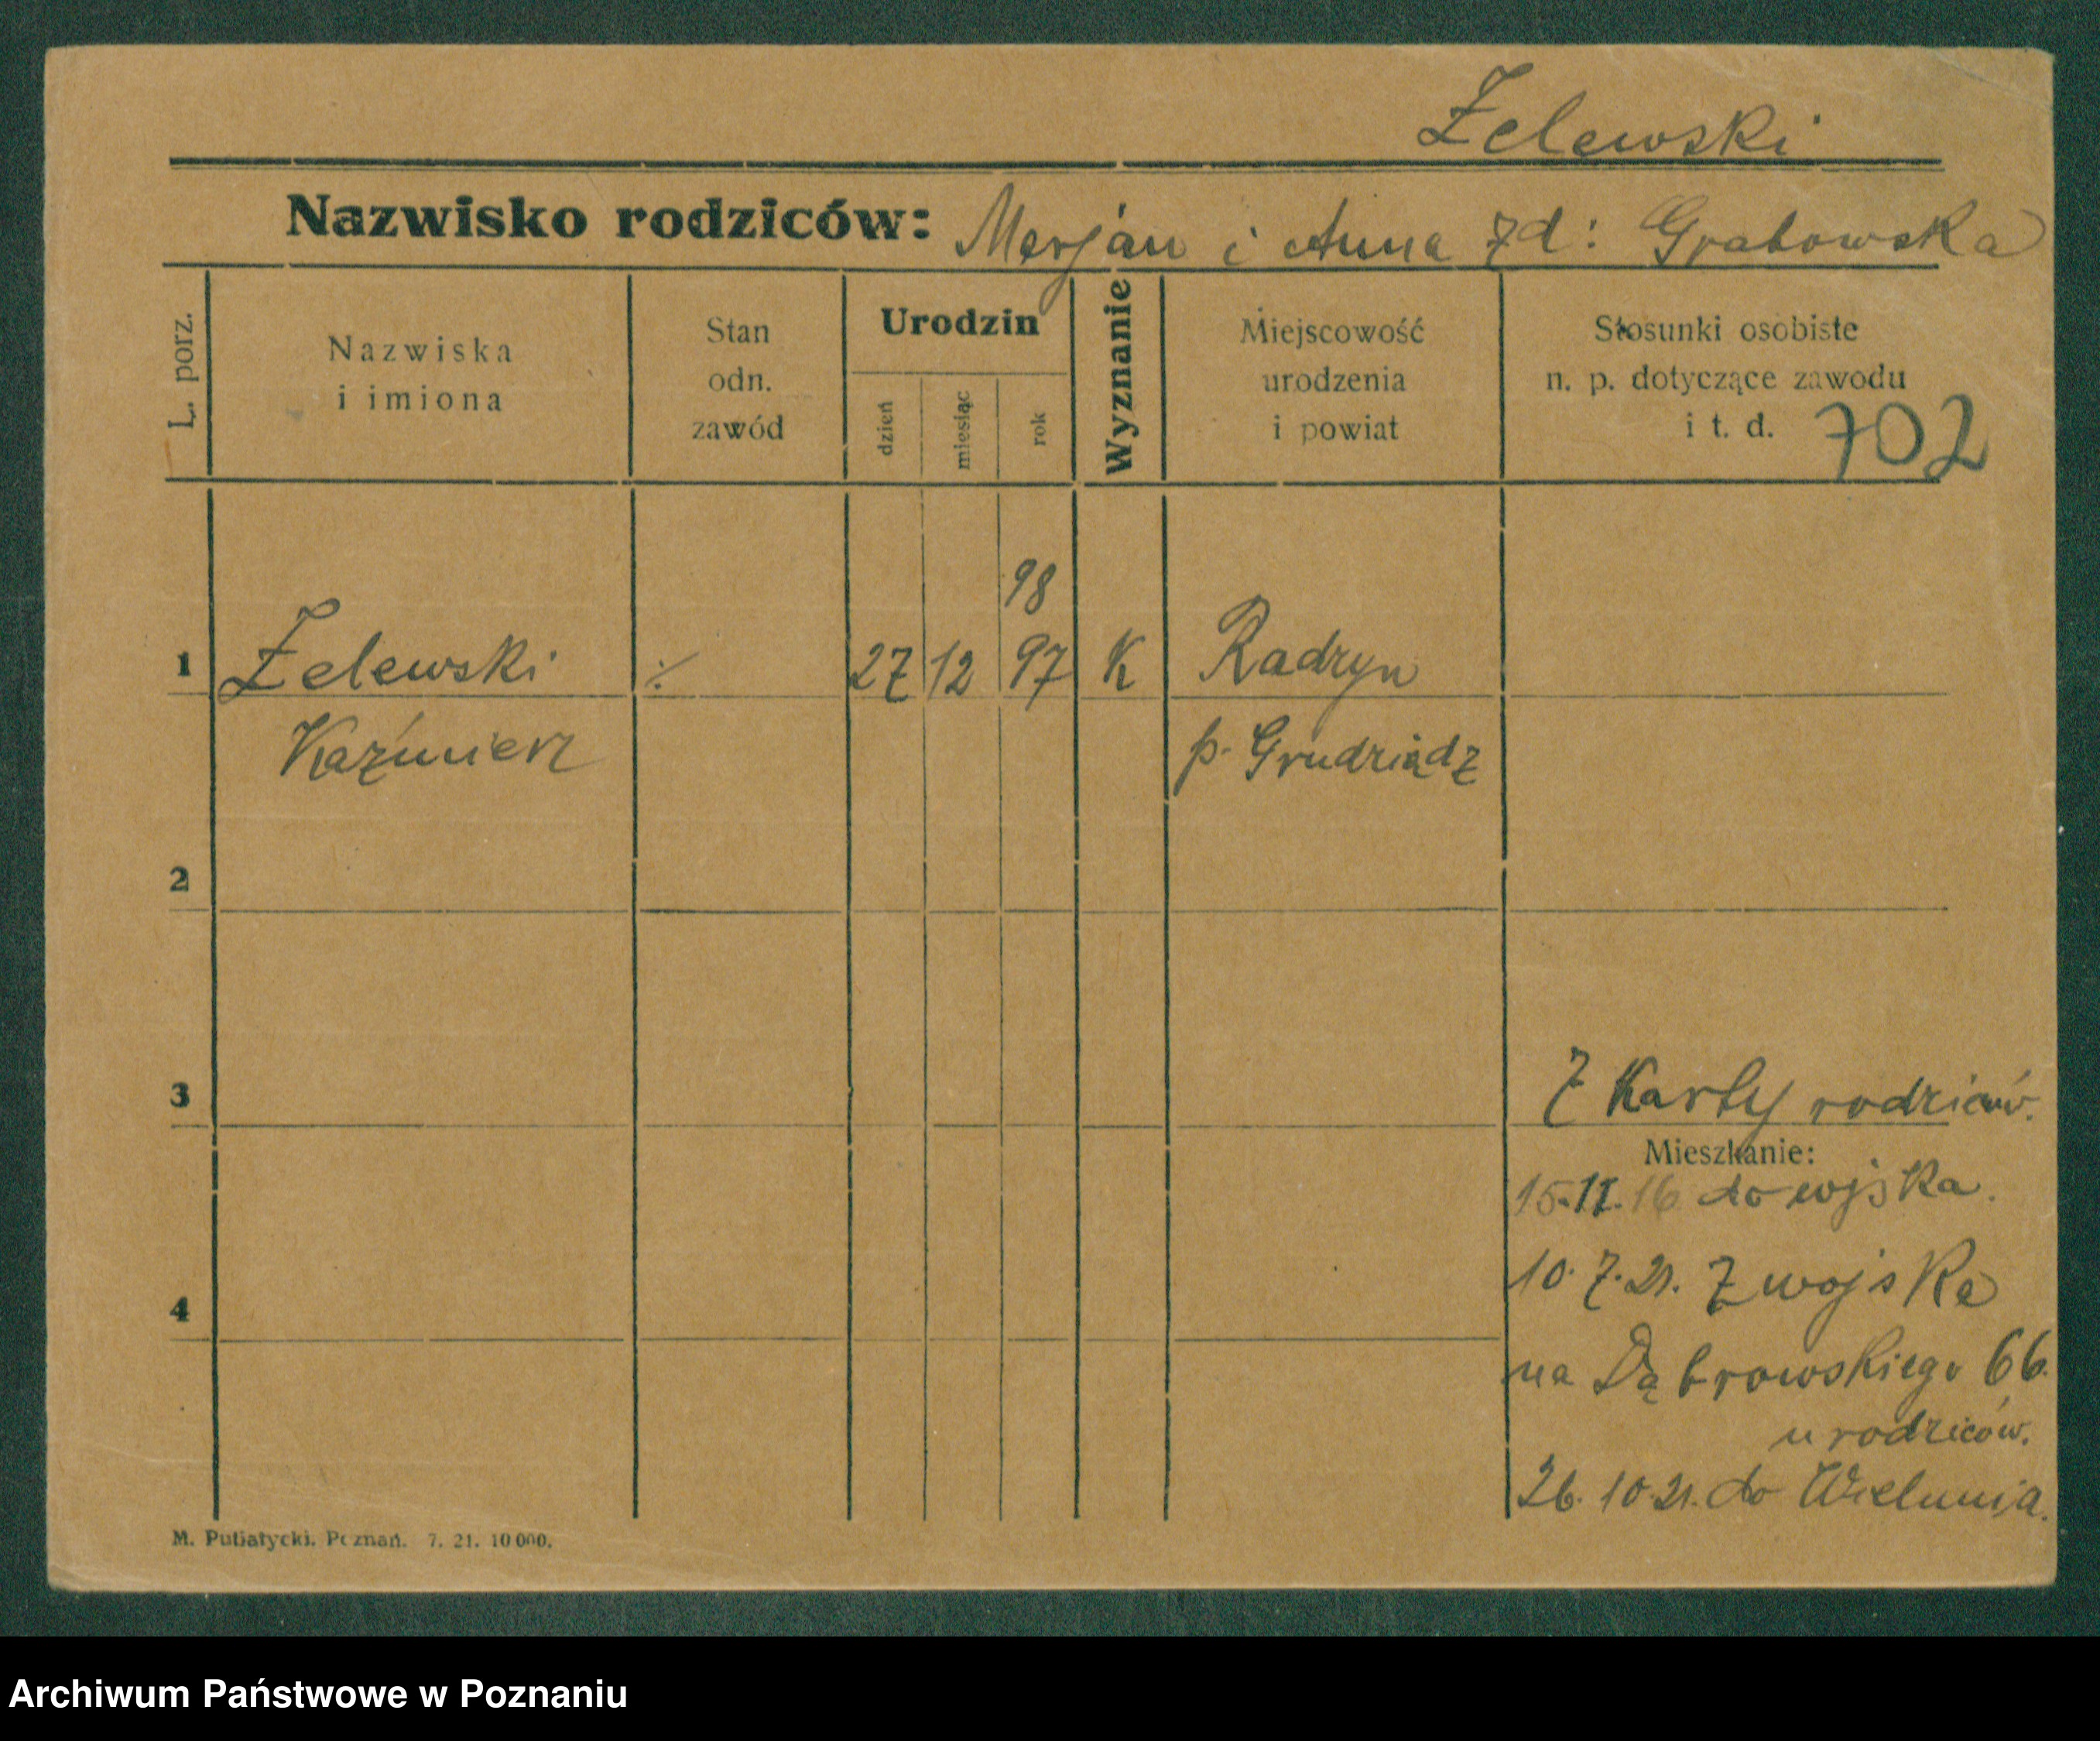 Żelewski
Nazwisko rodziców: Marján i Anna zd: Grabowska
L. porz.
Nazwiska
i imiona
Stan
odn.
zawód
Urodzin
dzień
miesiąc
rok
Wyznanie
Miejscowość
urodzenia
i powiat
Stosunki osobiste
n. p. dotyczące zawodu
i t. d. 702
98
1 Żelewski ·/. 27 12 97 K Radzyn
Kaźmierz p. Grudziądz
2
3
Z Karty rodziców.
Mieszkanie:
15. II. 16 do wojska.
10. 7. 21. Z wojska
4
na Dąbrowskiego 66.
u rodziców.
26. 10. 21. do Wielunia.
M. Putiatycki. Poznań. 7. 21. 10 000.
Archiwum Państwowe w Poznaniu